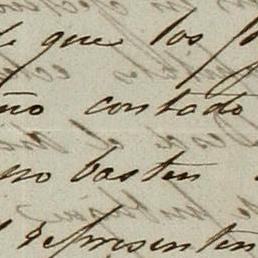 que los
ño contado
no basten
representen